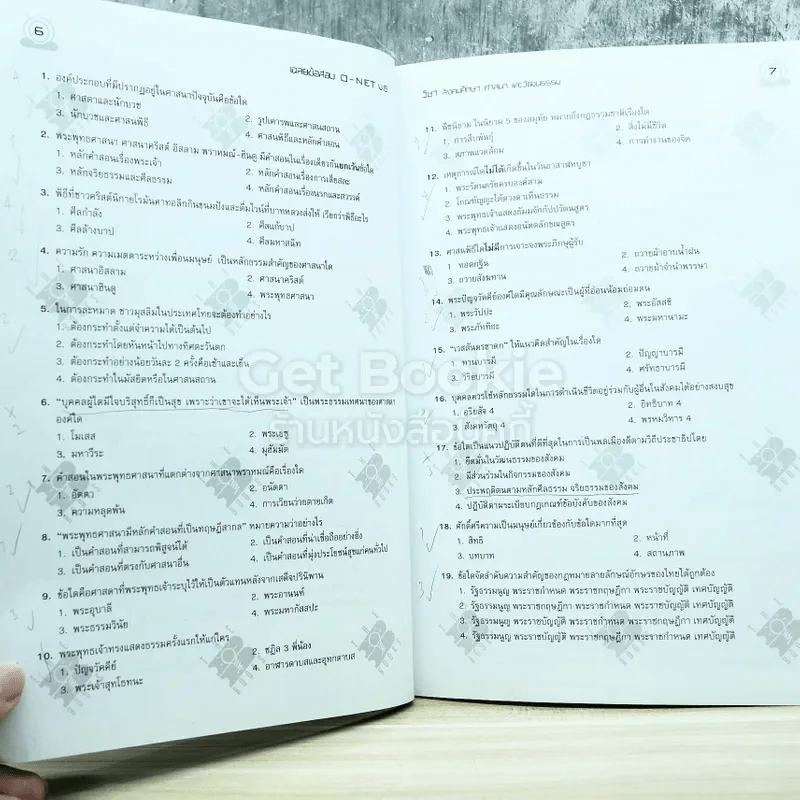 6
เฉลยข้อสอบ O-NET
1. องค์ประกอบที่มีปรากฏอยู่ในศาสนาปัจจุบันคือข้อใด
1. ศาสดาและนักบวช
2. รูปเคารพและศาสนสถาน
3. นักบวชและศาสนพิธี
4. ศาสนพิธีและหลักคำสอน
2. พระพุทธศาสนา ศาสนาคริสต์ อิสลาม พราหมณ์-ฮินดู มีคำสอนในเรื่องเดียวกันยกเว้นข้อใด
1. หลักคำสอนเรื่องพระเจ้า
2. หลักคำสอนเรื่องการเสียสละ
3. หลักจริยธรรมและศีลธรรม
4. หลักคำสอนเรื่องนรกและสวรรค์
3. พิธีที่ชาวคริสต์นิกายโรมันคาทอลิกกินขนมปังและดื่มไวน์ที่บาทหลวงส่งให้ เรียกว่าพิธีอะไร
1. ศีลกำลัง
2. ศีลแก้บาป
3. ศีลล้างบาป
4. ศีลมหาสนิท
4. ความรัก ความเมตตาระหว่างเพื่อนมนุษย์ เป็นหลักธรรมสำคัญของศาสนาใด
1. ศาสนาอิสลาม
2. ศาสนาคริสต์
3. ศาสนาฮินดู
4. พระพุทธศาสนา
5. ในการละหมาด ชาวมุสลิมในประเทศไทยจะต้องทำอย่างไร
1. ต้องกระทำตั้งแต่จำความได้เป็นต้นไป
2. ต้องกระทำโดยหันหน้าไปทางทิศตะวันตก
3. ต้องกระทำอย่างน้อยวันละ 2 ครั้งคือเช้าและเย็น
4. ต้องกระทำในมัสยิดหรือในศาสนสถาน
6. "บุคคลผู้ใดมีใจบริสุทธิ์ก็เป็นสุข เพราะว่าเขาจะได้เห็นพระเจ้า" เป็นพระธรรมเทศนาของศาสดา
องค์ใด
1. โมเสส
2. พระเยซู
3. มหาวีระ
4. มุฮัมมัด
7. คำสอนในพระพุทธศาสนาที่แตกต่างจากศาสนาพราหมณ์คือเรื่องใด
1. อัตตา
2. อนัตตา
3. ความหลุดพ้น
4. การเวียนว่ายตายเกิด
8. "พระพุทธศาสนามีหลักคำสอนที่เป็นทฤษฎีสากล" หมายความว่าอย่างไร
1. เป็นคำสอนที่สามารถพิสูจน์ได้
2. เป็นคำสอนที่น่าเชื่อถืออย่างยิ่ง
3. เป็นคำสอนที่ตรงกับศาสนาอื่น
4. เป็นคำสอนที่มุ่งประโยชน์สุขแก่คนทั่วไป
9. ข้อใดคือศาสดาที่พระพุทธเจ้าระบุไว้ให้เป็นตัวแทนหลังจากเสด็จปรินิพาน
1. พระอุบาลี
2. พระอานนท์
3. พระธรรมวินัย
4. พระมหากัสสปะ
10. พระพุทธเจ้าทรงแสดงธรรมครั้งแรกให้แก่ใคร
1. ปัญจวัคคีย์
2. ชฎิล 3 พี่น้อง
3. พระเจ้าสุทโธทนะ
4. อาฬารดาบสและอุทกดาบส
วิชา สังคมศึกษา ศาสนา และวัฒนธรรม
7
11. พีชนิยาม ในนิยาม 5 ของสมุทัย หมายถึงกฎธรรมชาติเรื่องใด
1. การสืบพันธุ์
2. สิ่งไม่มีชีวิต
3. สภาพแวดล้อม
4. การทำงานของจิต
12. เหตุการณ์ใดไม่ได้เกิดขึ้นในวันอาสาฬหบูชา
1. พระรัตนตรัยครบองค์สาม
2. โกณฑัญญะได้ดวงตาเห็นธรรม
3. พระพุทธเจ้าแสดงธัมมจักกัปปวัตนสูตร
4. พระพุทธเจ้าแสดงอนัตตลักขณสูตร
13. ศาสนพิธีใดไม่มีการเจาะจงพระภิกษุผู้รับ
1. ทอดกฐิน
2. ถวายผ้าอาบน้ำฝน
3. ถวายสังฆทาน
4. ถวายผ้าจำนำพรรษา
14. พระปัญจวัคคีย์องค์ใดมีคุณลักษณะเป็นผู้ที่อ่อนน้อมถ่อมตน
1. พระวัปปะ
2. พระอัสสชิ
3. พระภัททิยะ
4. พระมหานามะ
15. "เวสสันดรชาดก" ให้แนวคิดสำคัญในเรื่องใด
1. ทานบารมี
2. ปัญญาบารมี
3. วิริยบารมี
4. ศรัทธาบารมี
16. บุคคลควรใช้หลักธรรมใดในการดำเนินชีวิตอยู่ร่วมกับผู้อื่นในสังคมได้อย่างสงบสุข
1. อริยสัจ 4
2. อิทธิบาท 4
3. สังคหวัตถุ 4
4. พรหมวิหาร 4
17. ข้อใดเป็นแนวปฏิบัติตนที่ดีที่สุดในการเป็นพลเมืองดีตามวิถีประชาธิปไตย
1. ยึดมั่นในวัฒนธรรมของสังคม
2. มีส่วนร่วมในกิจกรรมของสังคม
3. ประพฤติตนตามหลักศีลธรรม จริยธรรมของสังคม
4. ปฏิบัติตามระเบียบกฎเกณฑ์ข้อบังคับของสังคม
18. ศักดิ์ศรีความเป็นมนุษย์เกี่ยวข้องกับข้อใดมากที่สุด
1. สิทธิ
2. หน้าที่
3. บทบาท
4. สถานภาพ
19. ข้อใดจัดลำดับความสำคัญของกฎหมายลายลักษณ์อักษรของไทยได้ถูกต้อง
1. รัฐธรรมนูญ พระราชกำหนด พระราชกฤษฎีกา พระราชบัญญัติ เทศบัญญัติ
2. รัฐธรรมนูญ พระราชกฤษฎีกา พระราชกำหนด พระราชบัญญัติ เทศบัญญัติ
3. รัฐธรรมนูญ พระราชบัญญัติ พระราชกำหนด พระราชกฤษฎีกา เทศบัญญัติ
4. รัฐธรรมนูญ พระราชบัญญัติ พระราชกฤษฎีกา พระราชกำหนด เทศบัญญัติ
Get Bookie